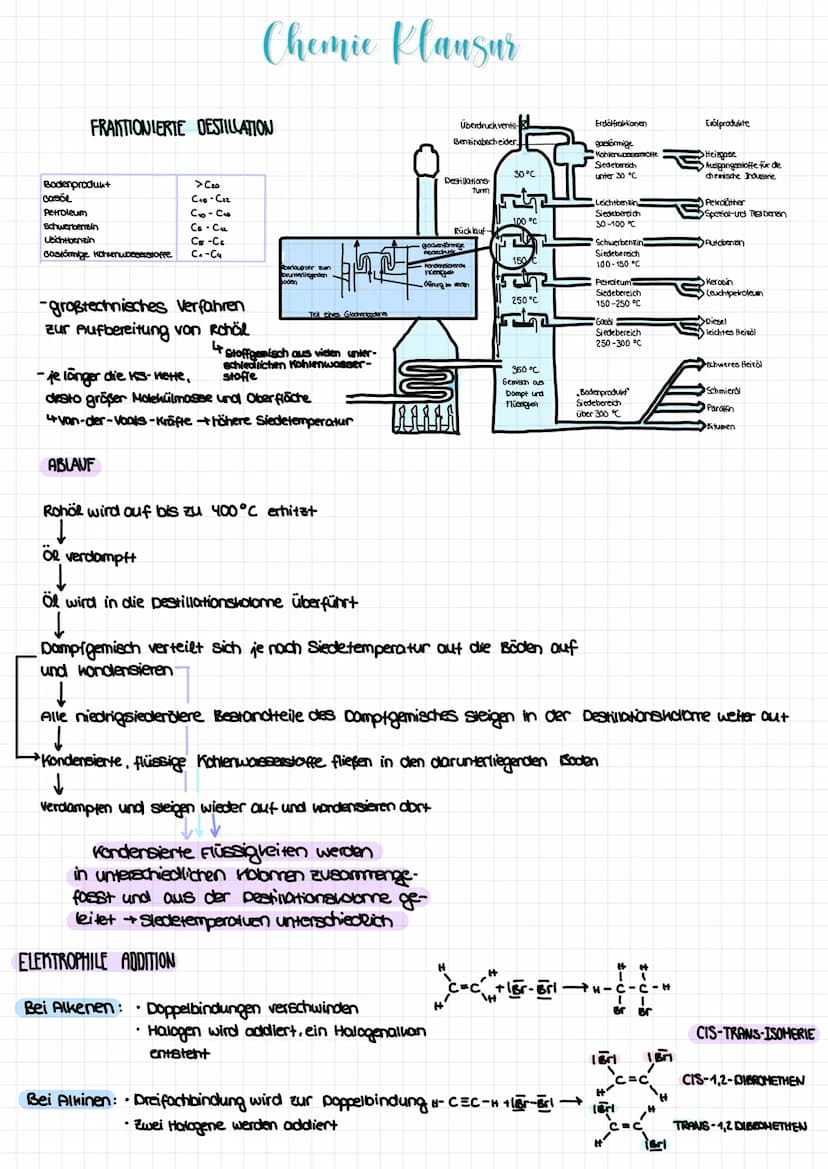 Chemie Klausur
FRAKTIONIERTE DESTILLATION
Bodenprodukt >C20
Gasöl
Petroleum
Schwerbenzin
Leichtbenzin C5 - C6
Gasförmige Kohlenwasserstoffe C1 - C4
- großtechnisches Verfahren
zur Aufbereitung von Rohöl
↳ Stoffgemisch aus vielen unter-
schiedlichen Kohlenwasser-
stoffe
- je länger die KS-Kette,
desto größer Molekülmasse und Oberfläche
↳ Van-der-Vaals-Kräfte → höhere Siedetemperatur
Überdruckventil
Benzinabscheider
Destillations-
turm
Rücklauf
30 °C
100 °C
150 °C
250 °C
350 °C
Gemisch aus
Dampf und
Flüssigkeit
glockenförmige
kondensierende
Flüssigkeit
Öffnung im Boden
Überlaufrohr zum
darunterliegenden
Boden
Teil eines Glockenbodens
Erdölfraktionen
gasförmige
Kohlenwasserstoffe
Siedebereich
unter 30 °C
Leichtbenzin
Siedebereich
30-100 °C
Schwerbenzin
Siedebereich
100-150 °C
Petroleum
Siedebereich
150-250 °C
Gasöl
Siedebereich
250-300 °C
„Bodenprodukt"
Siedebereich
über 300 °C
Erdölprodukte
Heizgase
Ausgangsstoffe für die
chemische Industrie
Petroläther
Spezial-und Testbenzin
Autobenzin
Kerosin
Leuchtpetroleum
Diesel
leichtes Heizöl
schweres Heizöl
Schmieröl
Paraffin
Bitumen
ABLAUF
Rohöl wird auf bis zu 400°C erhitzt
↓
Öl verdampft
↓
Öl wird in die Destillationskolonne überführt
↓
Dampfgemisch verteilt sich je nach Siedetemperatur auf die Böden auf
und kondensieren
↓
Alle niedrigsiedendere Bestandteile des Dampfgemisches steigen in der Destillationskolonne weiter auf
↓
Kondensierte, flüssige Kohlenwasserstoffe fließen in den darunterliegenden Boden
↓
Verdampfen und steigen wieder auf und kondensieren dort
Kondensierte Flüssigkeiten werden
in unterschiedlichen Kolonnen zusammenge-
fasst und aus der Destillationskolonne ge-
leitet → Siedetemperaturen unterschiedlich
ELEKTROPHILE ADDITION
Bei Alkenen: · Doppelbindungen verschwinden
· Halogen wird addiert, ein Halogenalkan
entsteht
H H
C=C + |Br-Br| → H-C-C-H
H H
H H
Br Br
Bei Alkinen: · Dreifachbindung wird zur Doppelbindung H-C≡C-H + |Br-Br| →
· Zwei Halogene werden addiert
CIS-TRANS-ISOMERIE
|Br| |Br|
C=C
H H
CIS-1,2-DIBROMETHEN
|Br| H
C=C
H |Br|
TRANS-1,2 DIBROMETHEN